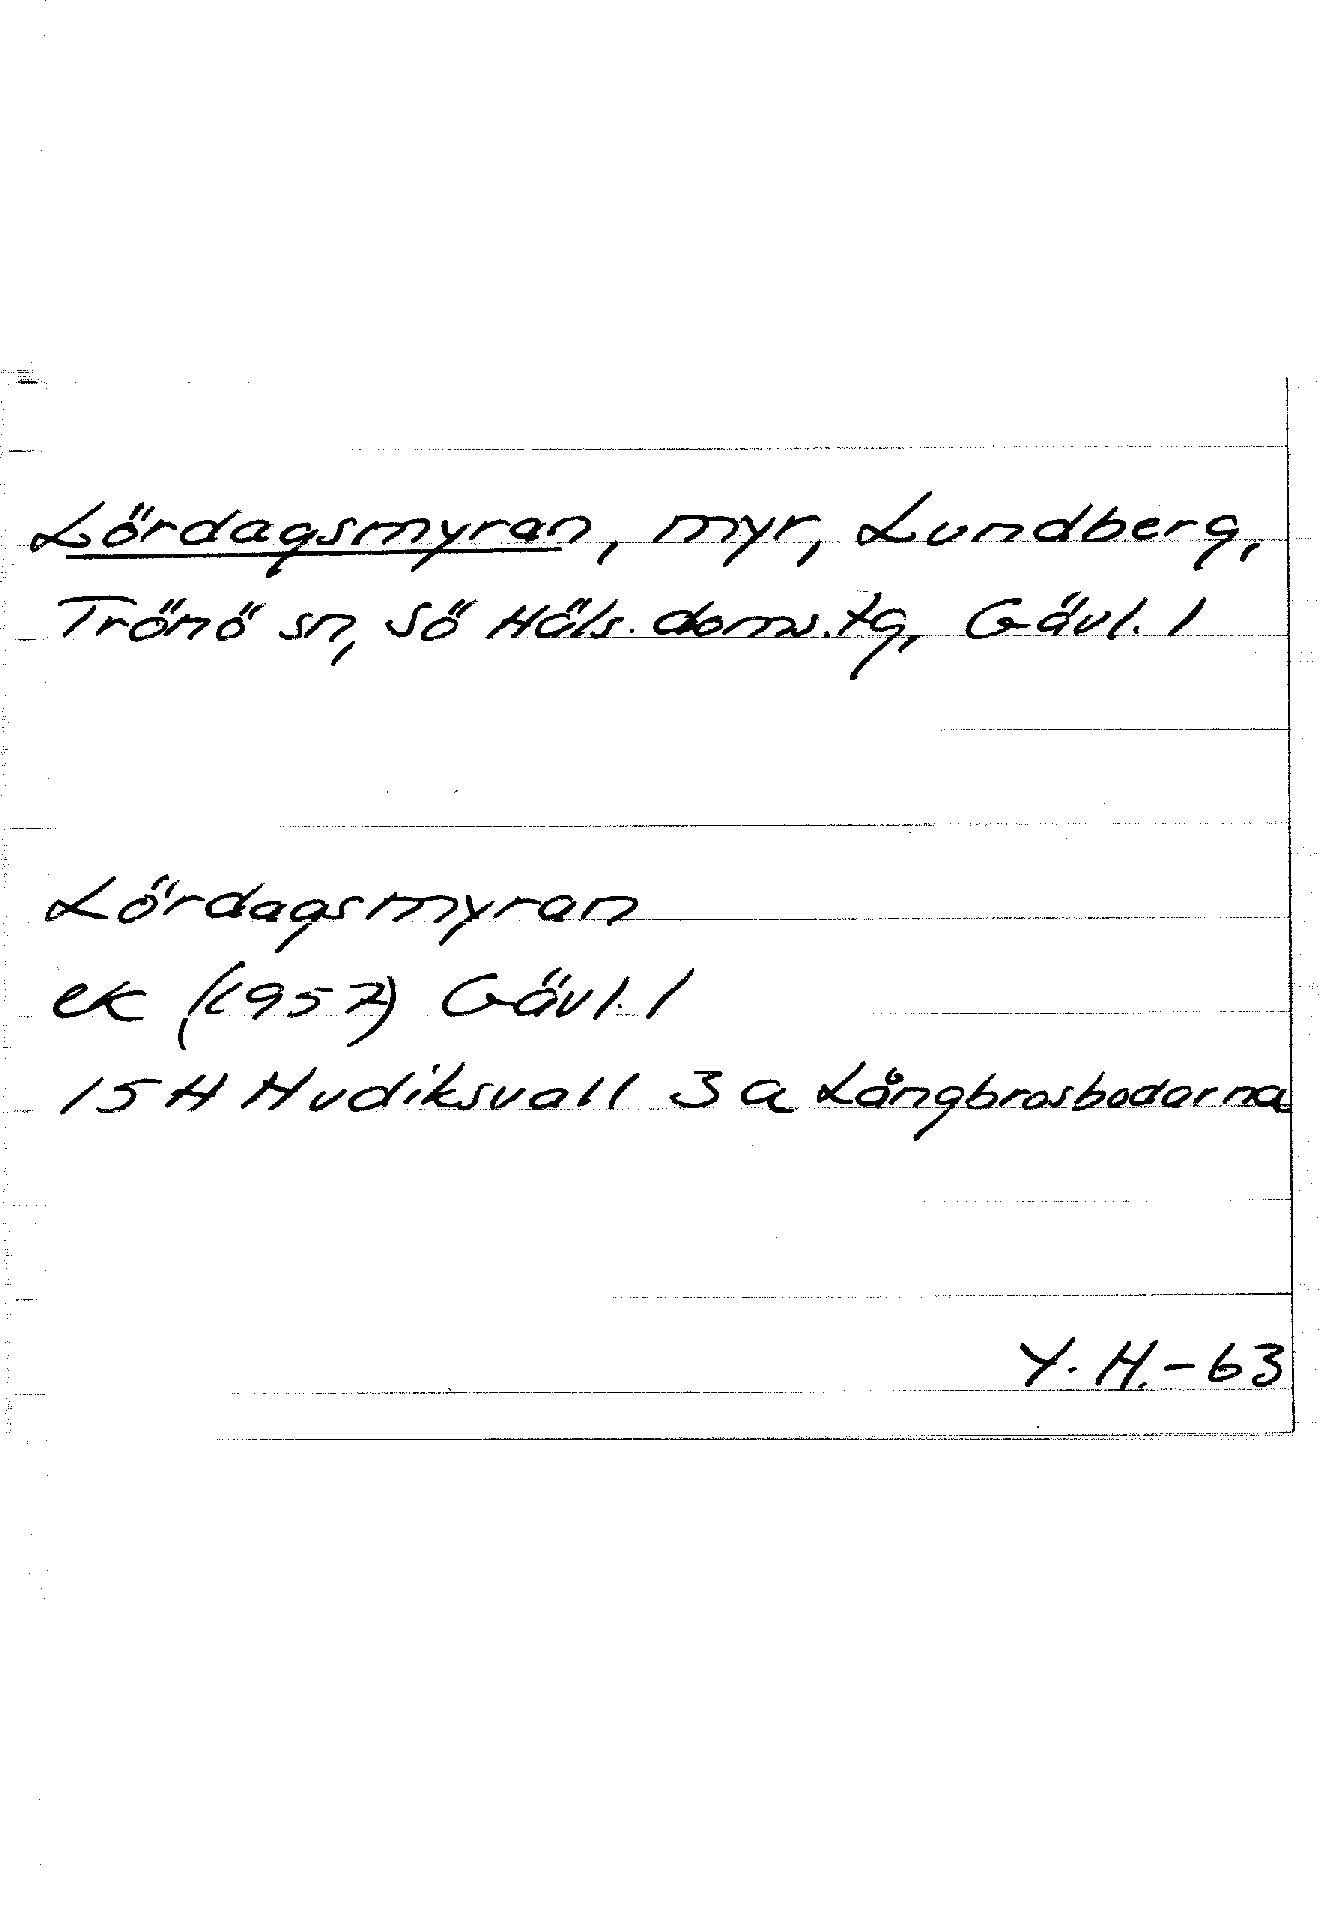 Lördagsmyran, myr, Lundberg,
Trönö sn, Sö Häls. doms. tg, Gävl. l
Lördagsmyran
ek (1957) Gävl. l
15H Hudiksvall 3a Långbrosbodarna
Y. H. - 63